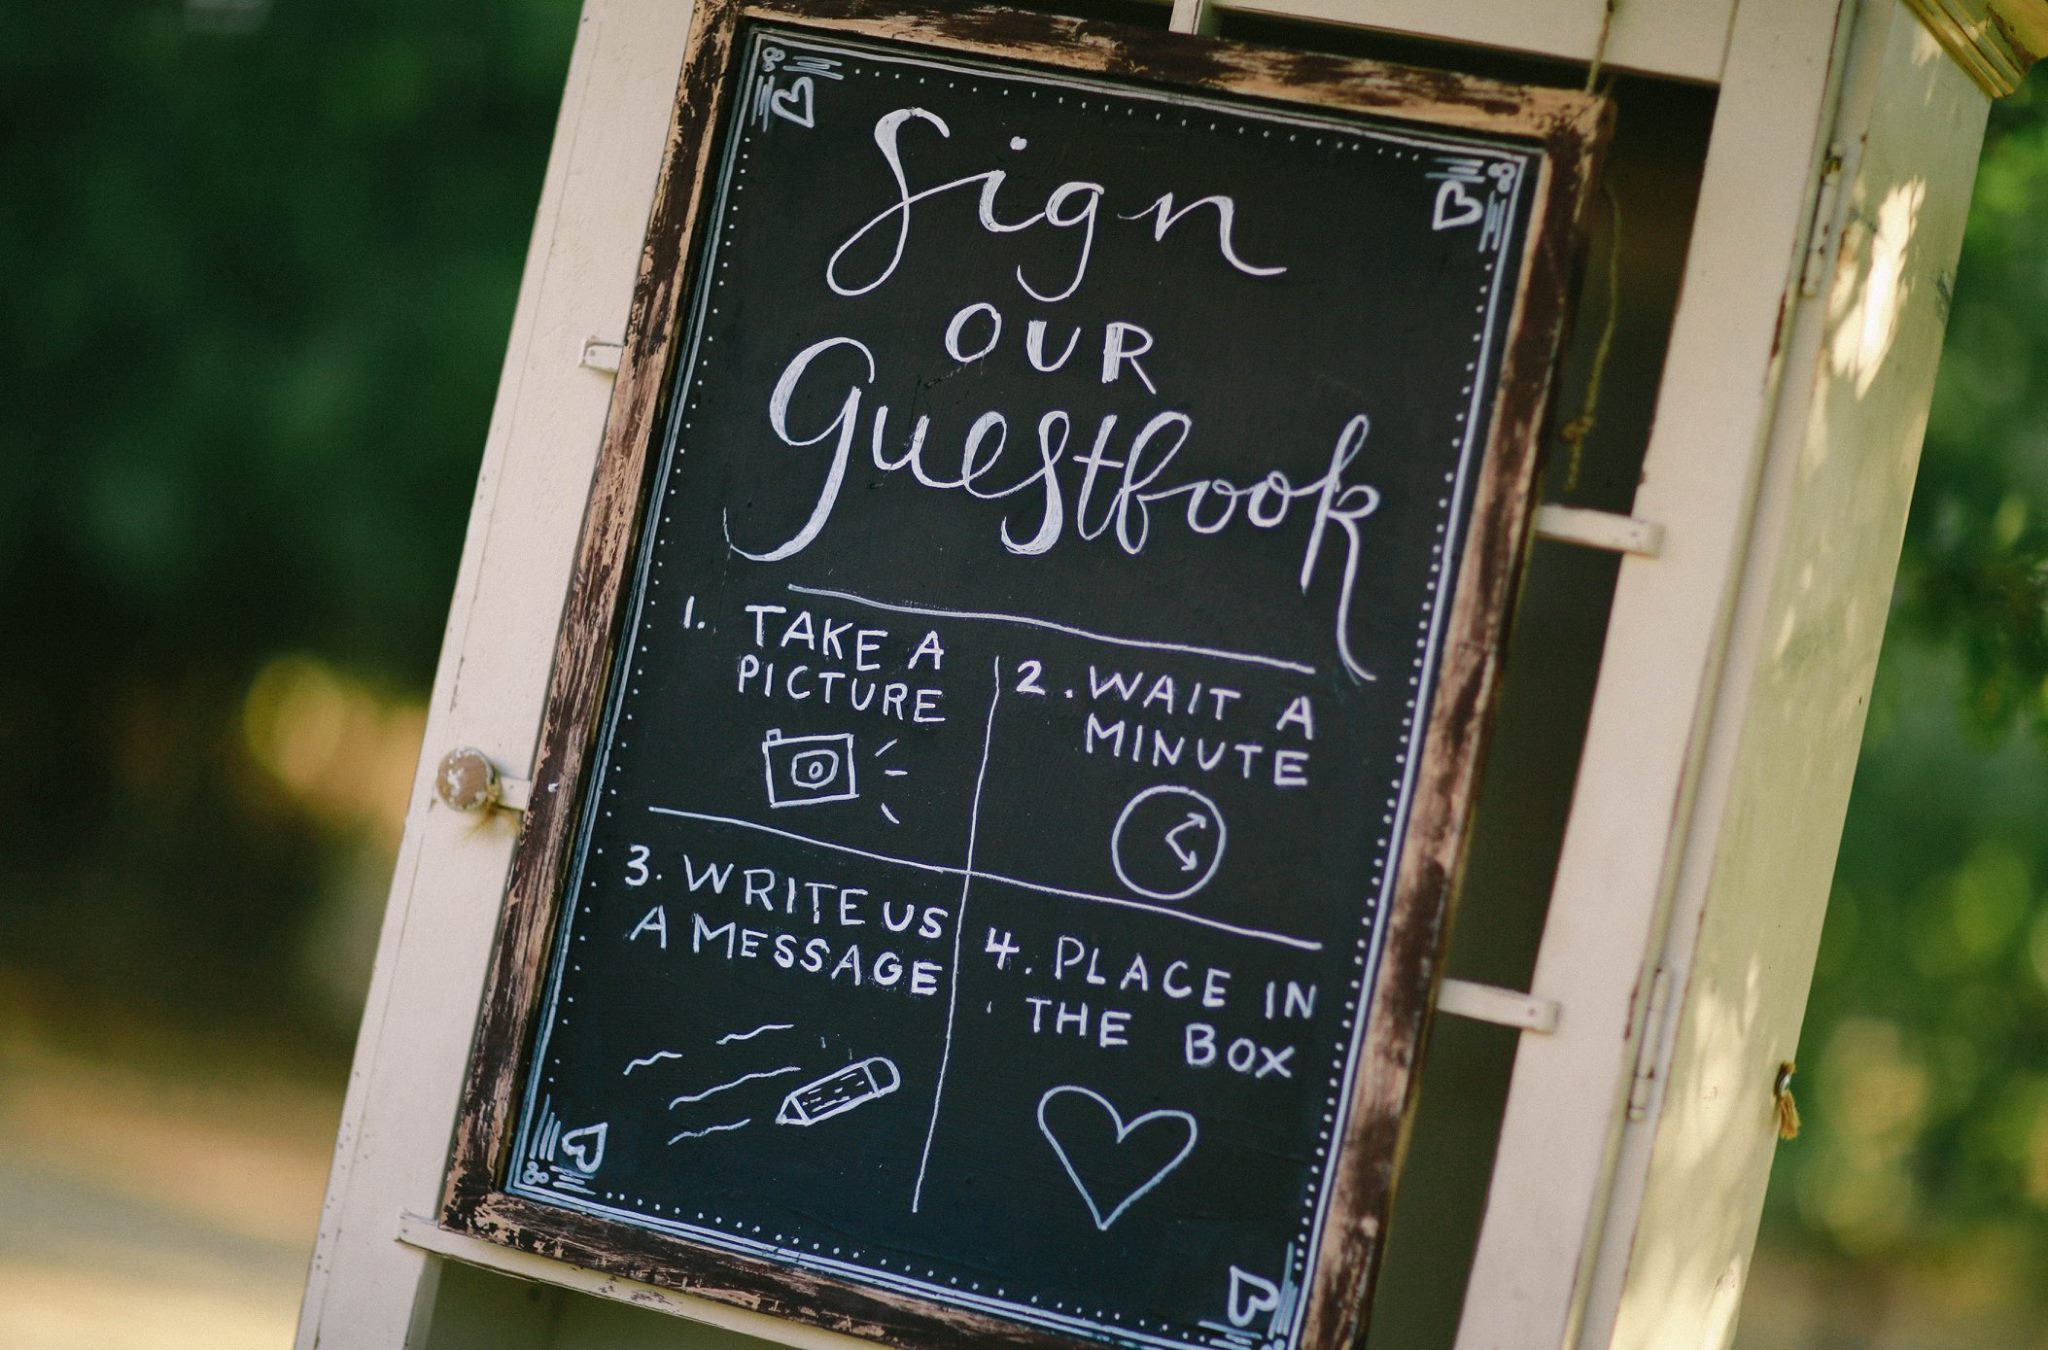 Sign
OUR
Guestbook
1. TAKE A
PICTURE
2. WAIT A
MINUTE
3. WRITE US
A MESSAGE
4. PLACE IN
THE BOX